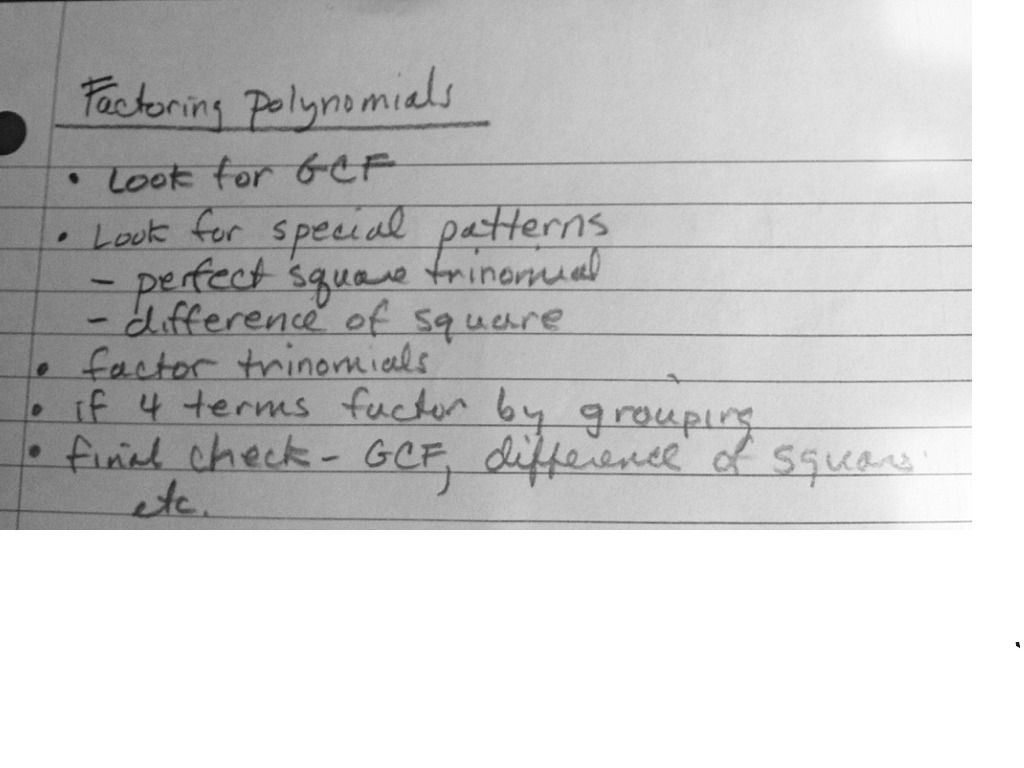 Factoring Polynomials
• Look for GCF
• Look for special patterns
- perfect square trinomial
- difference of square
• factor trinomials
• if 4 terms factor by grouping
• final check - GCF, difference of squares
etc.